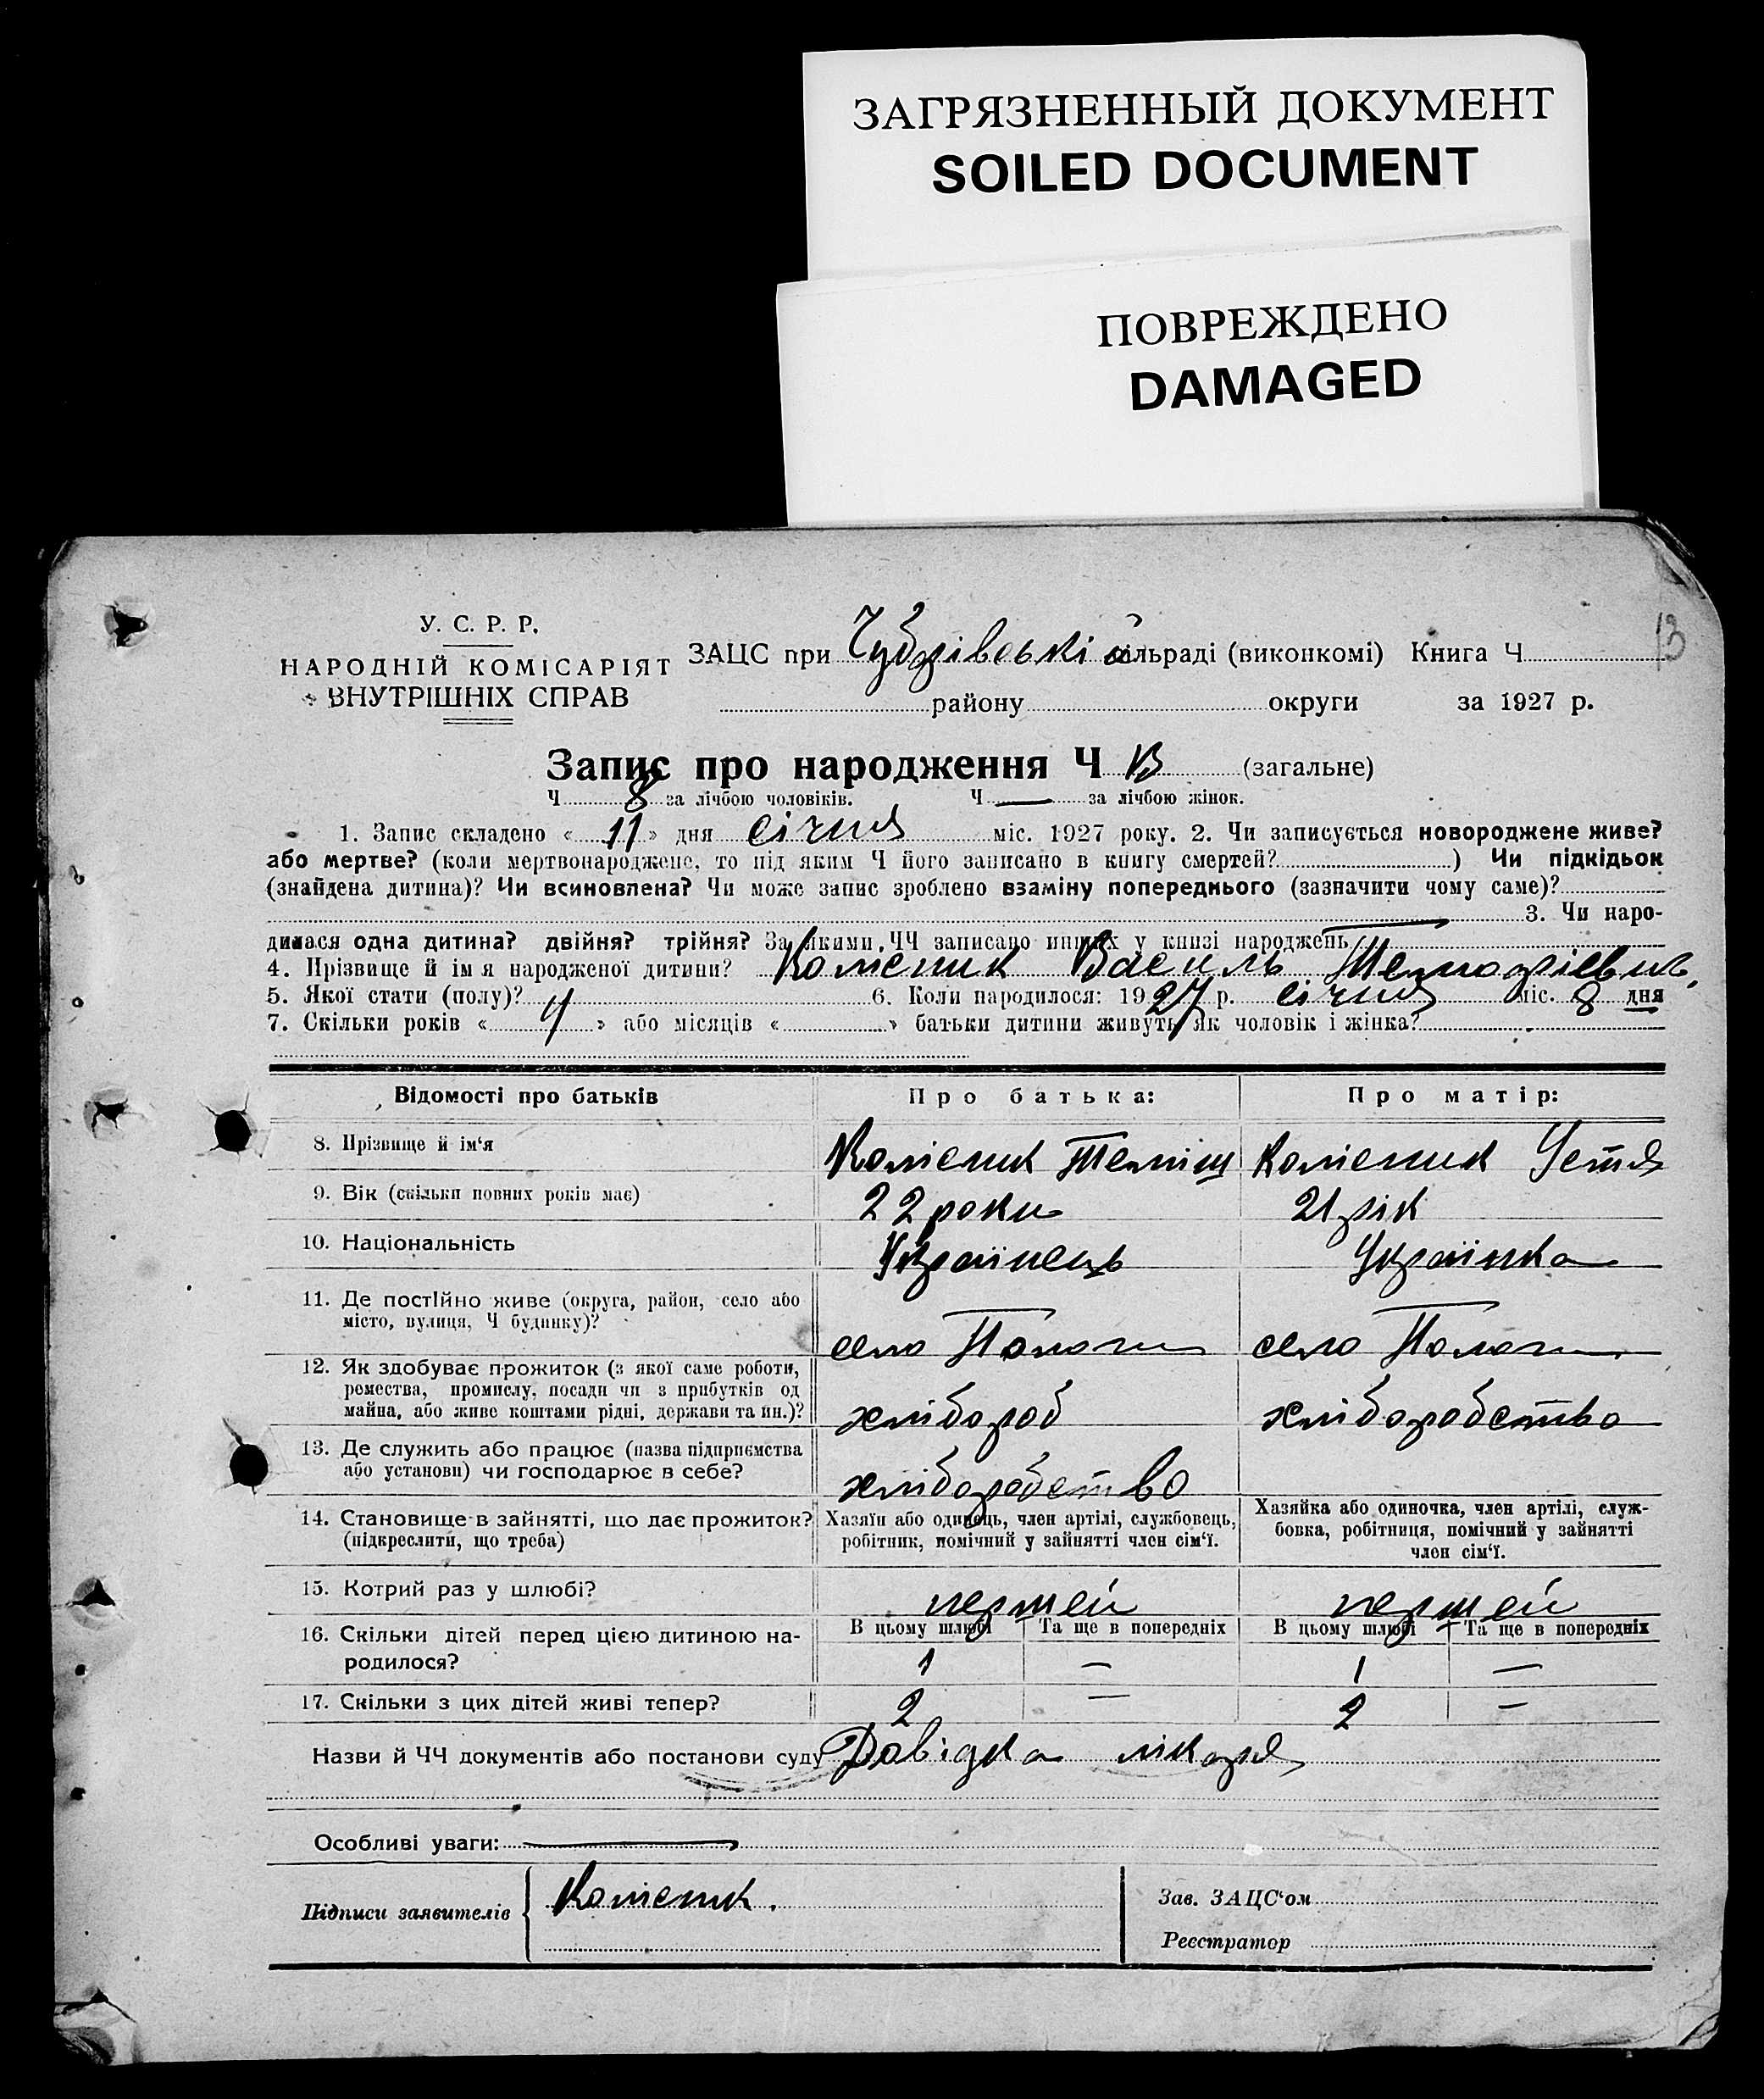 ЗАГРЯЗНЕННЫЙ ДОКУМЕНТ
SOILED DOCUMENT
ПОВРЕЖДЕНО
DAMAGED
13
У. С. Р. Р.
НАРОДНІЙ КОМІСАРІЯТ
ВНУТРІШНІХ СПРАВ
ЗАЦС при Чубарівській сільраді (виконкомі) Книга Ч
району округи за 1927 р.
Запис про народження Ч 13 (загальне)
Ч 8 за лічбою чоловіків. Ч — за лічбою жінок.
1. Запис складено « 11 » дня січня міс. 1927 року. 2. Чи записується новороджене живе?
або мертве? (коли мертвонароджене, то під яким Ч його записано в книгу смертей? ) Чи підкідьок
(знайдена дитина)? Чи всиновлена? Чи може запис зроблено взаміну попереднього (зазначити чому саме)?
3. Чи наро-
дилася одна дитина? двійня? трійня? За якими ЧЧ записано инших у книзі народжень
4. Прізвище й ім я народженої дитини? Василь
5. Якої стати (полу)? Ч 6. Коли народилося: 1927 р. січня міс. 8 дня
7. Скільки років « » або місяців « » батьки дитини живуть як чоловік і жінка?
Відомості про батьків Про батька: Про матір:
8. Прізвище й ім‘я Устя
9. Вік (скільки повних років має) 22 роки 21 рік
10. Національність Українець Українка
11. Де постійно живе (округа, район, село або
місто, вулиця, Ч будинку)? село Пологи село Пологи
12. Як здобуває прожиток (з якої саме роботи,
ремества, промислу, посади чи з прибутків од
майна, або живе коштами рідні, держави та ин.)? хлібороб хліборобство
13. Де служить або працює (назва підприємства
або установи) чи господарює в себе? хліборобство
14. Становище в зайнятті, що дає прожиток?
(підкреслити, що треба)
Хазяїн або одинець, член артілі, службовець,
робітник, помічний у зайнятті член сім‘ї.
Хазяйка або одиночка, член артілі, служ-
бовка, робітниця, помічний у зайнятті
член сім‘ї.
15. Котрий раз у шлюбі? першей першей
В цьому шлюбі Та ще в попередніх В цьому шлюбі Та ще в попередніх
16. Скільки дітей перед цією дитиною на-
родилося? 1 — 1 —
17. Скільки з цих дітей живі тепер? 2 — 2 —
Назви й ЧЧ документів або постанови суду Довідка лікаря
Особливі уваги: —
Підписи заявителів
Зав. ЗАЦС‘ом
Реєстратор